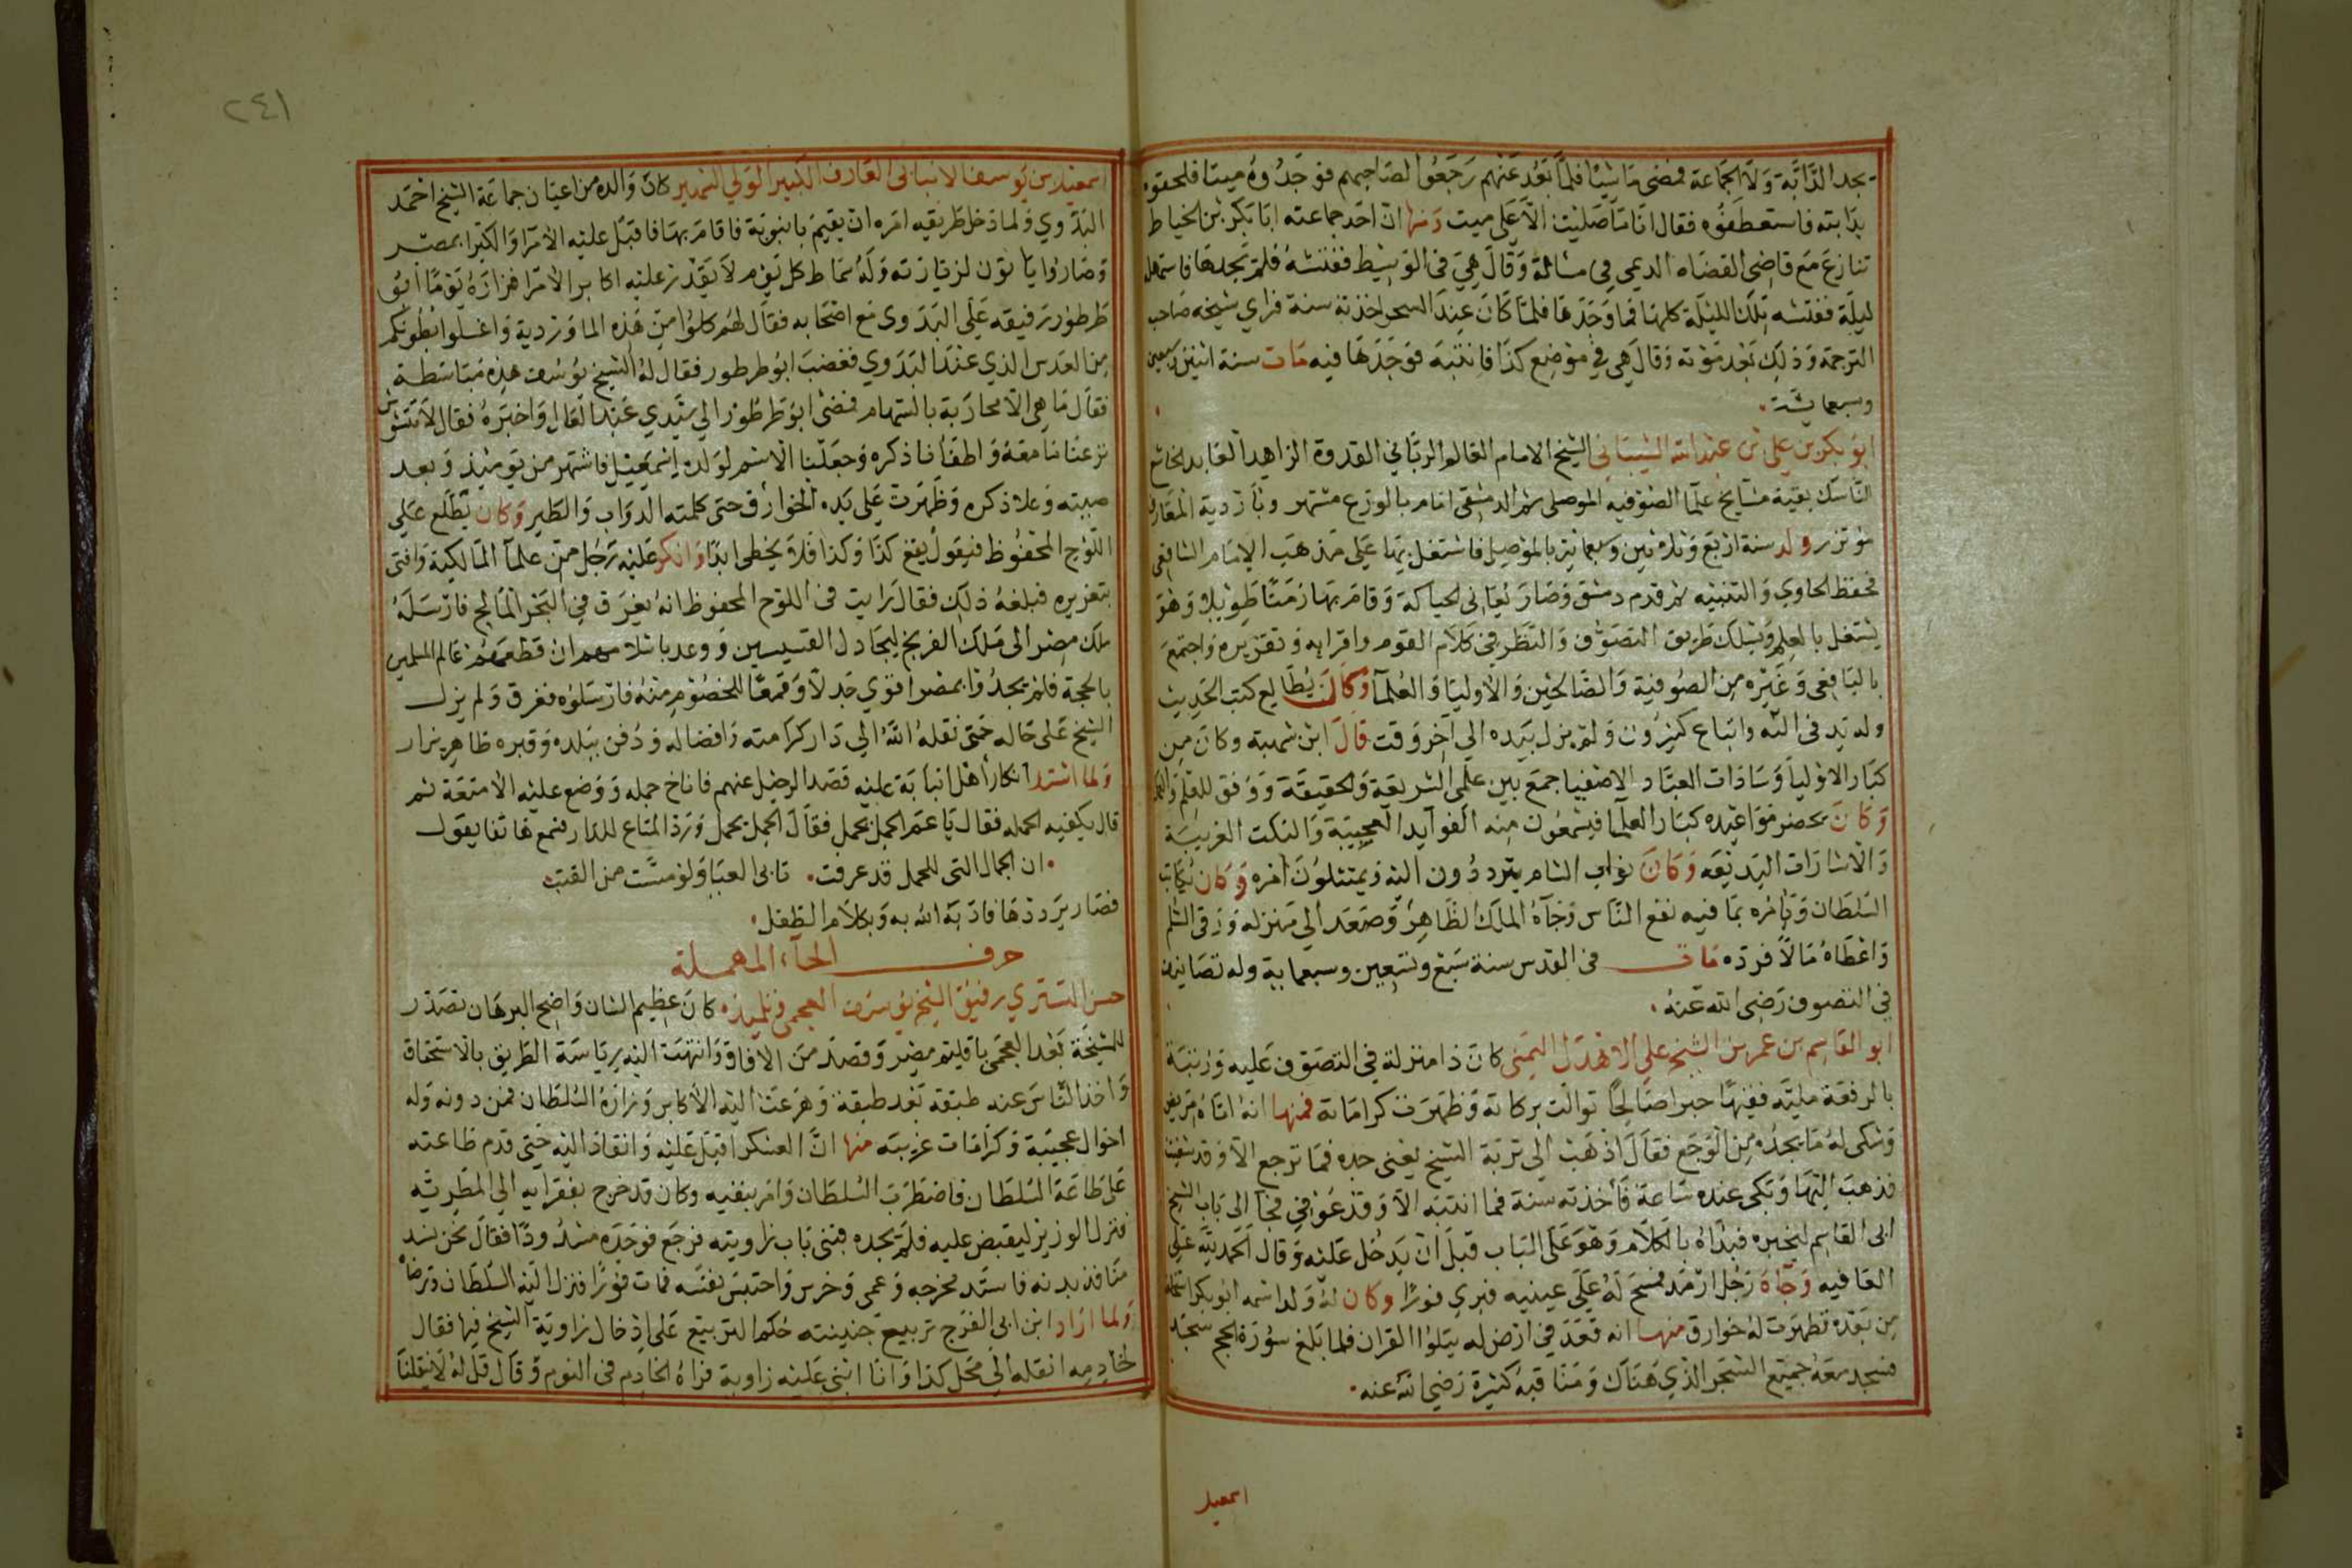 يجد الدابة ولا الجماعة فمضى ماشيا فلما بعد عنهم رجعوا لصاحبهم فوجدوه ميتا فلحقوه
بدابته فاستعطفوه فقال انا ما صليت الا على ميت ومنها ان احد جماعته ابا بكر بن الخياط
تنازع مع قاضي القضاه الريمي في مسالة وقال هي في الوسيط ففتشه فلم يجدها فاستمهله
ليلة ففتشه تلك الليلة كلها فما وجدها فلما كان عند السحر اخذته سنة فراي شيخه صاحب
الترجمة وذلك بعد موته وقال هي في موضع كذا فانتبه فوجدها فيه مات سنة اثنين وسبعين
وسبعمائة
ابو بكر بن علي بن عبد الله الشيباني الشيخ الامام العالم الرباني القدوة الزاهد العابد الخاشع
الناسك بقية مشايخ علما الصوفيه الموصلي ثم الدمشقي امام بالورع مشتهر وبازدية المعارف
مؤتزر ولد سنة اربع وثلاثين وسبعمائة بالموصل فاشتغل بها على مذهب الامام الشافعي
فحفظ الحاوي والتنبيه ثم قدم دمشق وصار يعاني الحياكة وقام بها زمنا طويلا وهو
يشتغل بالعلم ويسلك طريق التصوف والنظر في كلام القوم واقرايه وتقريره واجتمع
باليافعي وغيره من الصوفية والصالحين والاوليا والعلما وكان يطالع كتب الحديث
وله يد في الله واتباع كثيرون ولم يزل بيده الي آخر وقت قال ابن شهبة وكان من
كبار الاوليا وسادات العباد الاصفيا جمع بين علمي الشريعة والحقيقة ووفق للعلم والعمل
وكان يحضر مواعيده كبار العلما فيسمعون منه الفوايد العجيبة والنكت الغريبة
والاشارات البديعه وكان نواب الشام يترددون اليه ويمتثلون امره وكان يكاتب
السلطان ويامره بما فيه نفع الناس وجآه الملك الظاهر وصعد الي منزله ورقى السلم
واعطاه مالا فرده مات في القدس سنة سبع وتسعين وسبعماية وله تصانيف
في التصوف رضي الله عنه
ابو القاسم بن عمر بن الشيخ علي الاهدل اليمني كان ذا منزلة في التصوف عليه ورتبة
بالرفعة مليه فقيها حبرا صالحا توالت بركاته وظهرت كراماته فمنها انه اتاه مريض
وشكى له ما يجده من الوجع فقال اذهب الي تربة الشيخ يعني جده فما ترجع الا وقد شفيت
فذهب اليها وبكى عنده ساعة فاخذته سنة فما انتبه الا وقد عوفي فجآ الى باب الشيخ
ابي القاسم ليخبره فبداه بالكلام وهو على الباب قبل ان يدخل عليه وقال الحمد لله على
العافيه وجاه رجل ارمد فمسح له على عينيه فبري فورا وكان له ولد اسمه ابو بكر استخلفه
من بعده فظهرت له خوارق منها انه قعد في ارض له يتلوا القران فلما بلغ سورة الحج سجد
فسجد معه جميع الشجر الذي هناك ومناقبه كثيرة رضي الله عنه
اسمعيل
٢٤١
اسمعيل بن يوسف الانبابي العارف الكبير الولي الشهير كان والده من اعيان جماعة الشيخ احمد
البدوي ولما دخل طريقه امره ان يقيم بانبوبة فاقام بها فاقبل عليه الامرا والكبرا بمصر
وصاروا ياتون لزيارته وله سماط كل يوم لا يقدر عليه اكابر الامرا فزاره يوما ابو
طرطور رفيقه على البدوي مع اصحابه فقال لهم كلوا من هذه الماوردية واغسلوا بطونكم
من العدس الذي عند البدوي فغضب ابو طرطور فقال له الشيخ يوسف هذه مباسطة
فقال ما هي الا محاربة بالسهام فمضى ابو طرطور الي سيدي عبد العال واخبره فقال لا تتشوش
نزعنا ما معه واطفانا ذكره وجعلنا الاسم لولده اسمعيل فاشتهر من يومئذ وبعد
صيته وعلا ذكره وظهرت على يده الخوارق حتى كلمته الدواب والطير وكان يطلع على
اللوح المحفوظ فيقول يقع كذا وكذا فلا يخطي ابدا وانكر عليه رجل من علما المالكية وافتى
بتعزيره فبلغه ذلك فقال رايت في اللوح المحفوظ انه يغرق في البحر المالح فارسله
ملك مصر الى ملك الفرنج ليجادل القسيسين ووعد باسلامهم ان قطعهم عالم المسلمين
بالحجة فلم يجدوا بمصر اقوي جدلا وقمعا للخصوم منه فارسلوه فغرق ولم يزل
الشيخ على حاله حتى نقله الله الي دار كرامته وافضاله ودفن ببلده وقبره ظاهر يزار
ولما اشتد انكار أهل انبابة عليه قصد الرحيل عنهم فاناخ جمله ووضع عليه الامتعة ثم
قال يكفيه الحمله فقال يا عم الجمل يحمل فقال الجمل يحمل ورد المتاع للدار فسمع هاتفا يقول
ان الجمال التي للحمل قد عرفت تابى العبا ولو مست من القتب
فصار يرددها فادبه الله به وبكلام الطفل
حرف الحآء المهملة
حسن التستري رفيق الشيخ يوسف العجمي وتلميذه كان عظيم الشان واضح البرهان تصدر
للمشيخة بعد العجمي باقليم مصر وقصد من الافاق وانتهت اليه رياسة الطريق بالاستحقاق
واخذ الناس عنه طبقة بعد طبقة وهرعت اليه الاكابر وزاره السلطان فمن دونه وله
احوال عجيبة وكرامات غريبه منها ان العسكر اقبل عليه وانقاد اليه حتى قدم طاعته
على طاعة السلطان فاضطرب السلطان وامر بنفيه وكان قد خرج بفقرايه الي المطريه
فنزل الوزير ليقبض عليه فلم يجده فبنى باب زاويته فرجع فوجده مسدودا فقال نحن نسد
منافذ بدنه فانسد مخرجه وعمى وخرس واحتبس نفسه فمات فورا فنزل اليه السلطان وترضاه
ولما اراد ابن ابي الفرج تربيع جنينته حكم التربيع على ادخال زاوية الشيخ فيها فقال
لخادمه انقله الي محل كذا وانا ابني عليه زاوية فراه الخادم في النوم وقال قل له لا ينقلنا